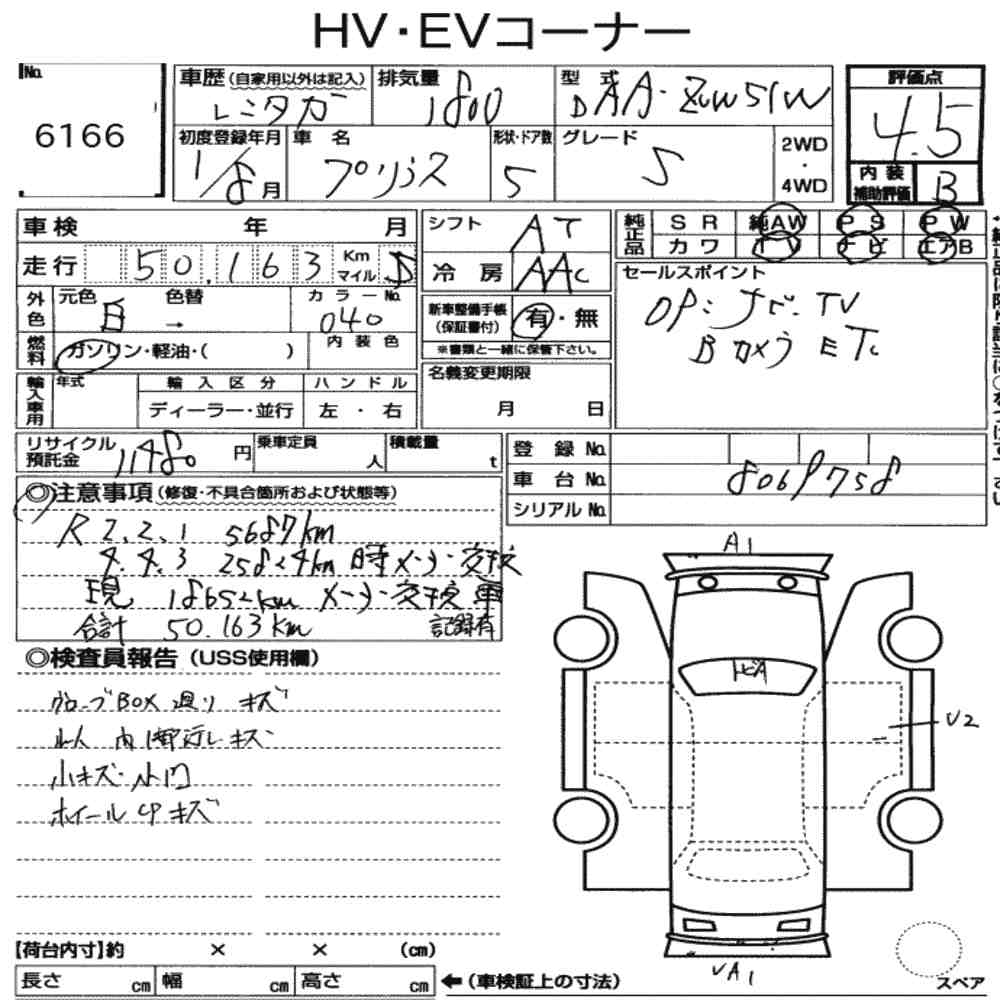 HV・EVコーナー
No.
6166
車歴 (自家用以外は記入)
レンタカー
排気量
1800
型式
DAA-ZVW51W
評価点
4.5
初度登録年月
1/8月
車名
プリウス
形状・ドア数
5
グレード
S
2WD
・
4WD
内装補助評価
B
車検 年 月
走行 50,163 Km マイル
シフト
AT
冷房
AAC
純正品
SR 純AW PS PW
カワ TV ナビ エアB
外色
元色 白
色替 →
カラーNo. 040
内装色
燃料
ガソリン・軽油・( )
新車整備手帳 (保証書付)
有・無
※書類と一緒に保管下さい。
セールスポイント
OP:ナビ・TV
Bカメラ ETC
輸入車用
年式
輸入区分
ディーラー・並行
ハンドル
左・右
名義変更期限
月 日
リサイクル預託金
11480円
乗車定員
人
積載量
t
登録No.
車台No.
8069758
シリアルNo.
◎注意事項 (修復・不具合箇所および状態等)
R2.2.1 5687km
4.4.3 25824km 時メーター交換
現 18652km メーター交換車
合計 50.163km 記録有
◎検査員報告 (USS使用欄)
グローブBOX廻りキズ
ルーム内1部汚レキズ
小キズ・小凹
ホイールCPキズ
A1
トビA
U2
UA1
【荷台内寸】約 × × (cm)
長さ cm 幅 cm 高さ cm
←(車検証上の寸法)
スペア